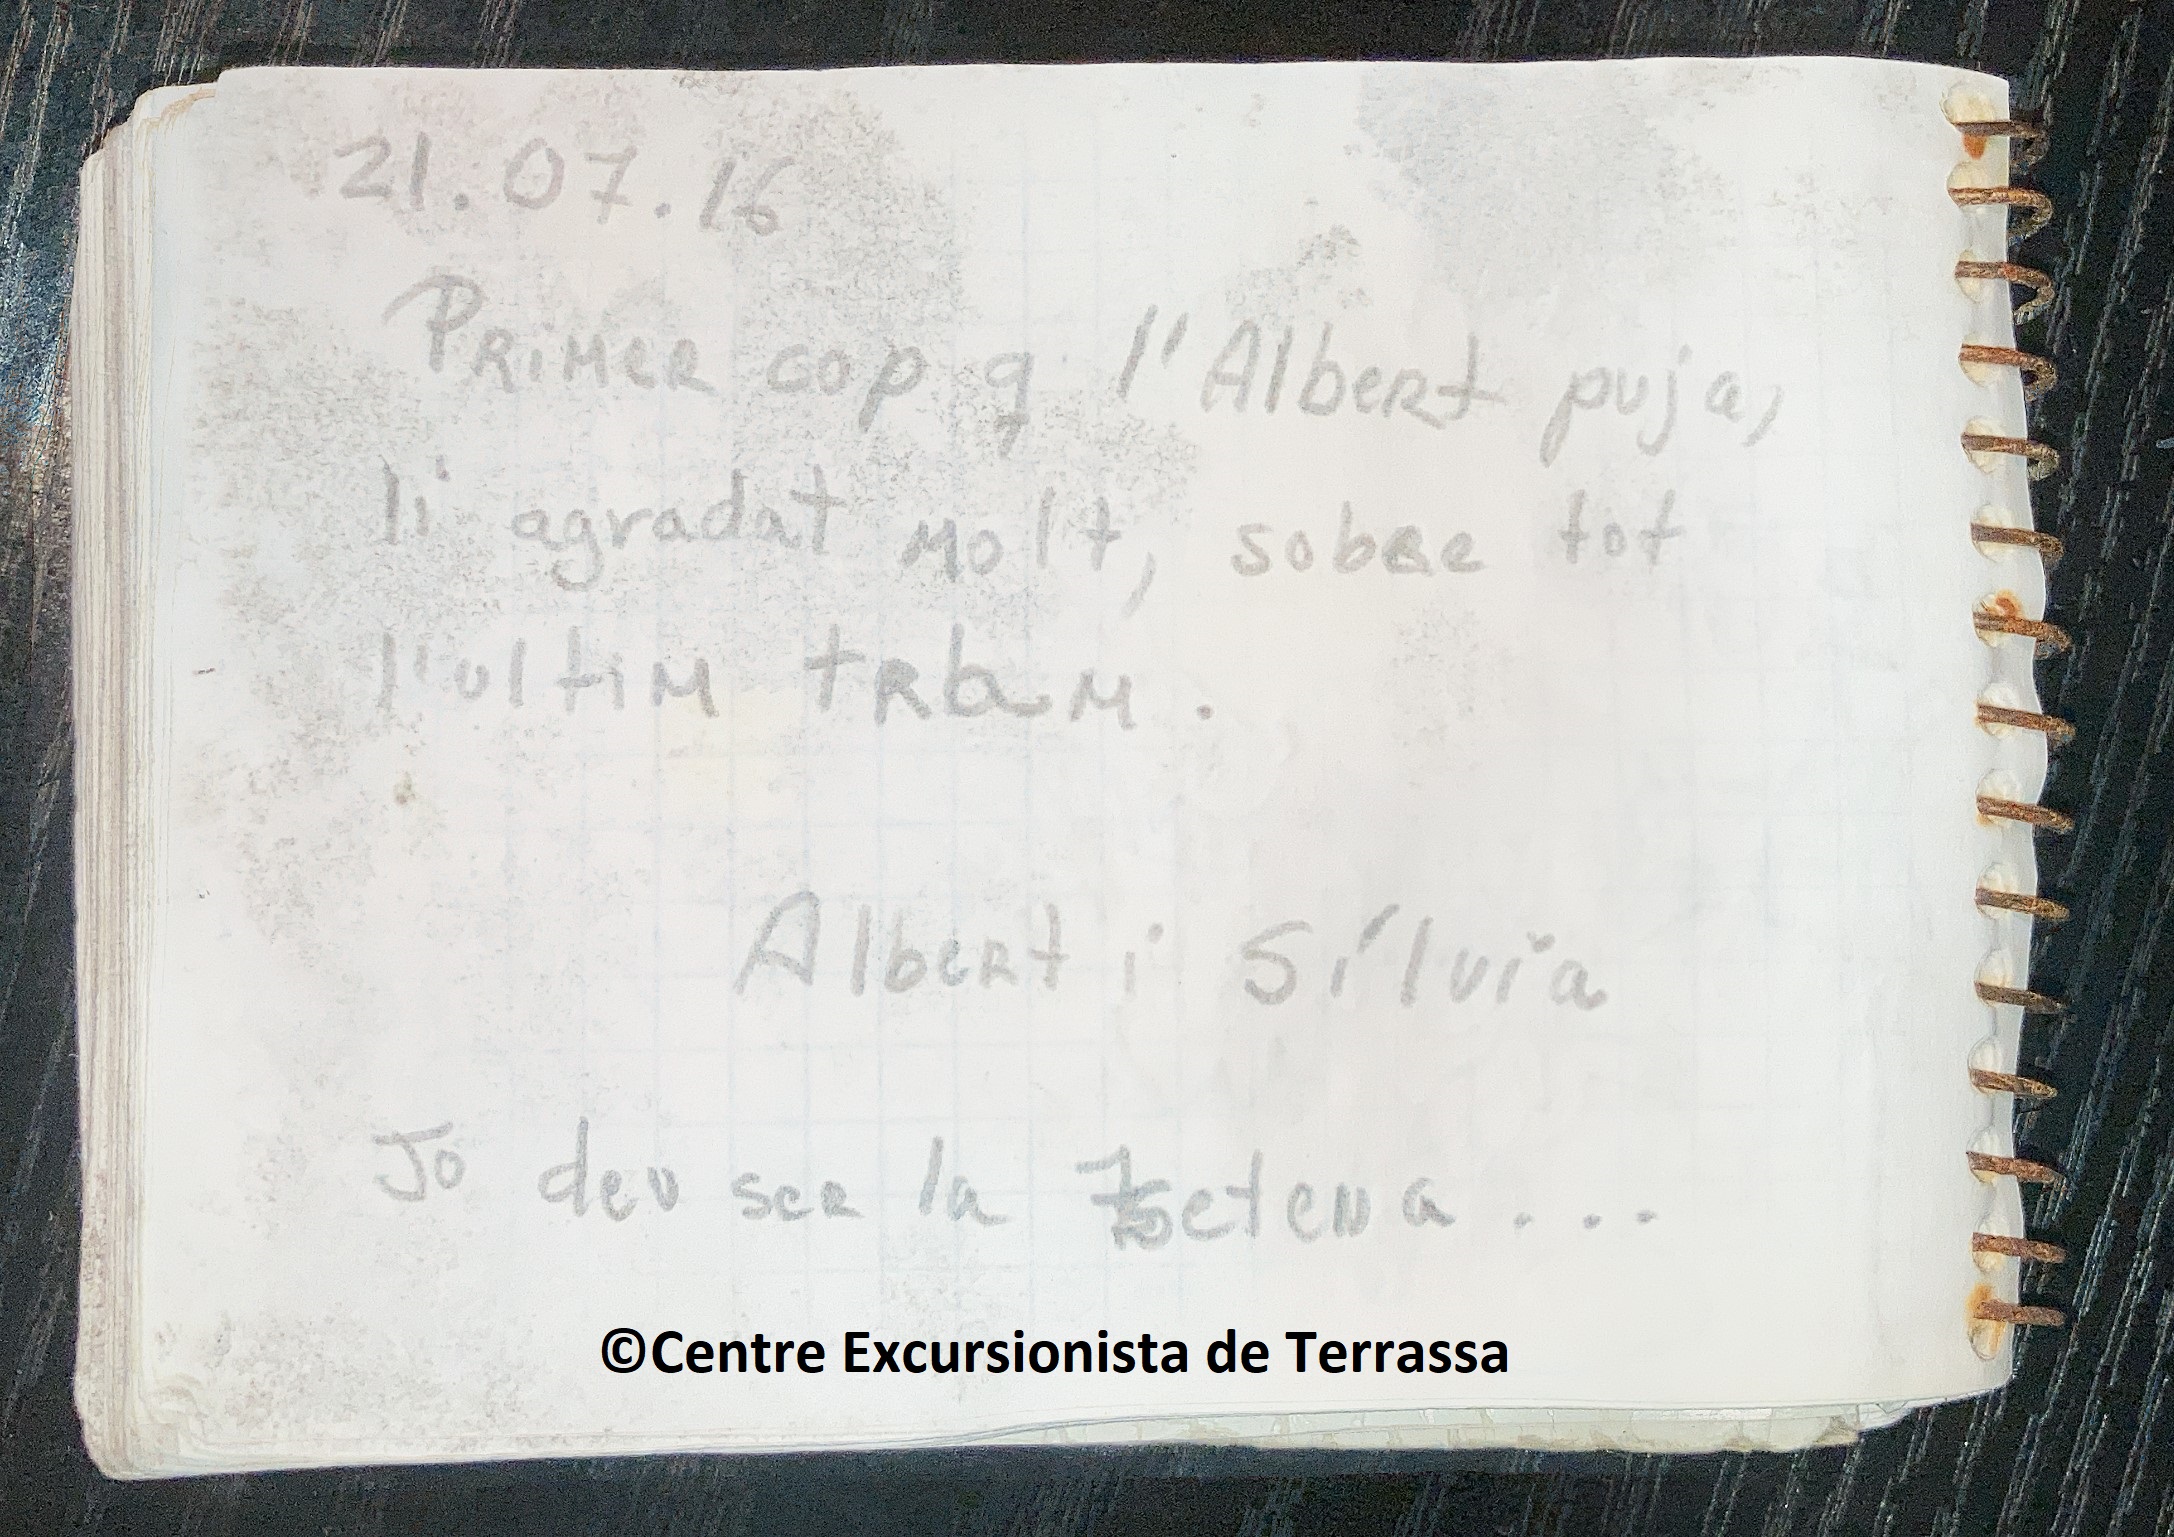 21.07.16
Primer cop q l'Albert puja,
li agradat molt, sobre tot
l'ultim tram.
Albert i Sílvia
Jo deu ser la setena...
©Centre Excursionista de Terrassa